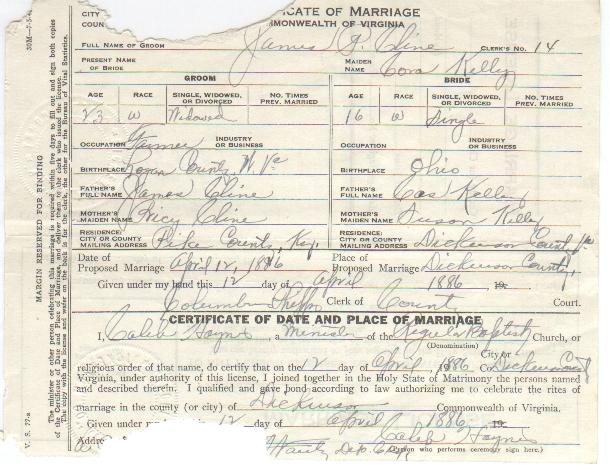 CITY
ICATE OF MARRIAGE
COUN
MMONWEALTH OF VIRGINIA
FULL NAME OF GROOM James P. Cline CLERK'S NO. 14
PRESENT NAME OF BRIDE MAIDEN NAME Cora Kelly
GROOM BRIDE
AGE RACE SINGLE, WIDOWED, OR DIVORCED NO. TIMES PREV. MARRIED AGE RACE SINGLE, WIDOWED, OR DIVORCED NO. TIMES PREV. MARRIED
23 W Widowed 16 W Single
OCCUPATION Farmer INDUSTRY OR BUSINESS OCCUPATION INDUSTRY OR BUSINESS
BIRTHPLACE Logan County, W. Va BIRTHPLACE Ohio
FATHER'S FULL NAME James Cline FATHER'S FULL NAME Cas Kelly
MOTHER'S MAIDEN NAME Cline MOTHER'S MAIDEN NAME Susan Kelly
RESIDENCE: CITY OR COUNTY MAILING ADDRESS Pike County, Ky. RESIDENCE: CITY OR COUNTY MAILING ADDRESS Dickenson County, Va
Date of Proposed Marriage April 12, 1886 Place of Proposed Marriage Dickenson County,
Given under my hand this 12 day of April 1886 19
Clerk of County Court.
CERTIFICATE OF DATE AND PLACE OF MARRIAGE
I, Caleb Haynes, a Minister of the Regular Baptist Church, or
(Denomination) City or
religious order of that name, do certify that on the 12 day of April, 1886 Co Dickenson Co
Virginia, under authority of this license, I joined together in the Holy State of Matrimony the persons named
and described therein. I qualified and gave bond according to law authorizing me to celebrate the rites
of marriage in the county (or city) of Dickenson Commonwealth of Virginia.
Given under my 12 day of April 1886 19
Addre Caleb Haynes
Dep.
(Person who performs ceremony sign here.)
30M—7-5-4
MARGIN RESERVED FOR BINDING
The minister or other person celebrating this marriage is required within five days to fill out and sign both copies
of the Certificate of Date and Place of Marriage, and deliver them to the clerk who issued the license.
V. S. 77-a